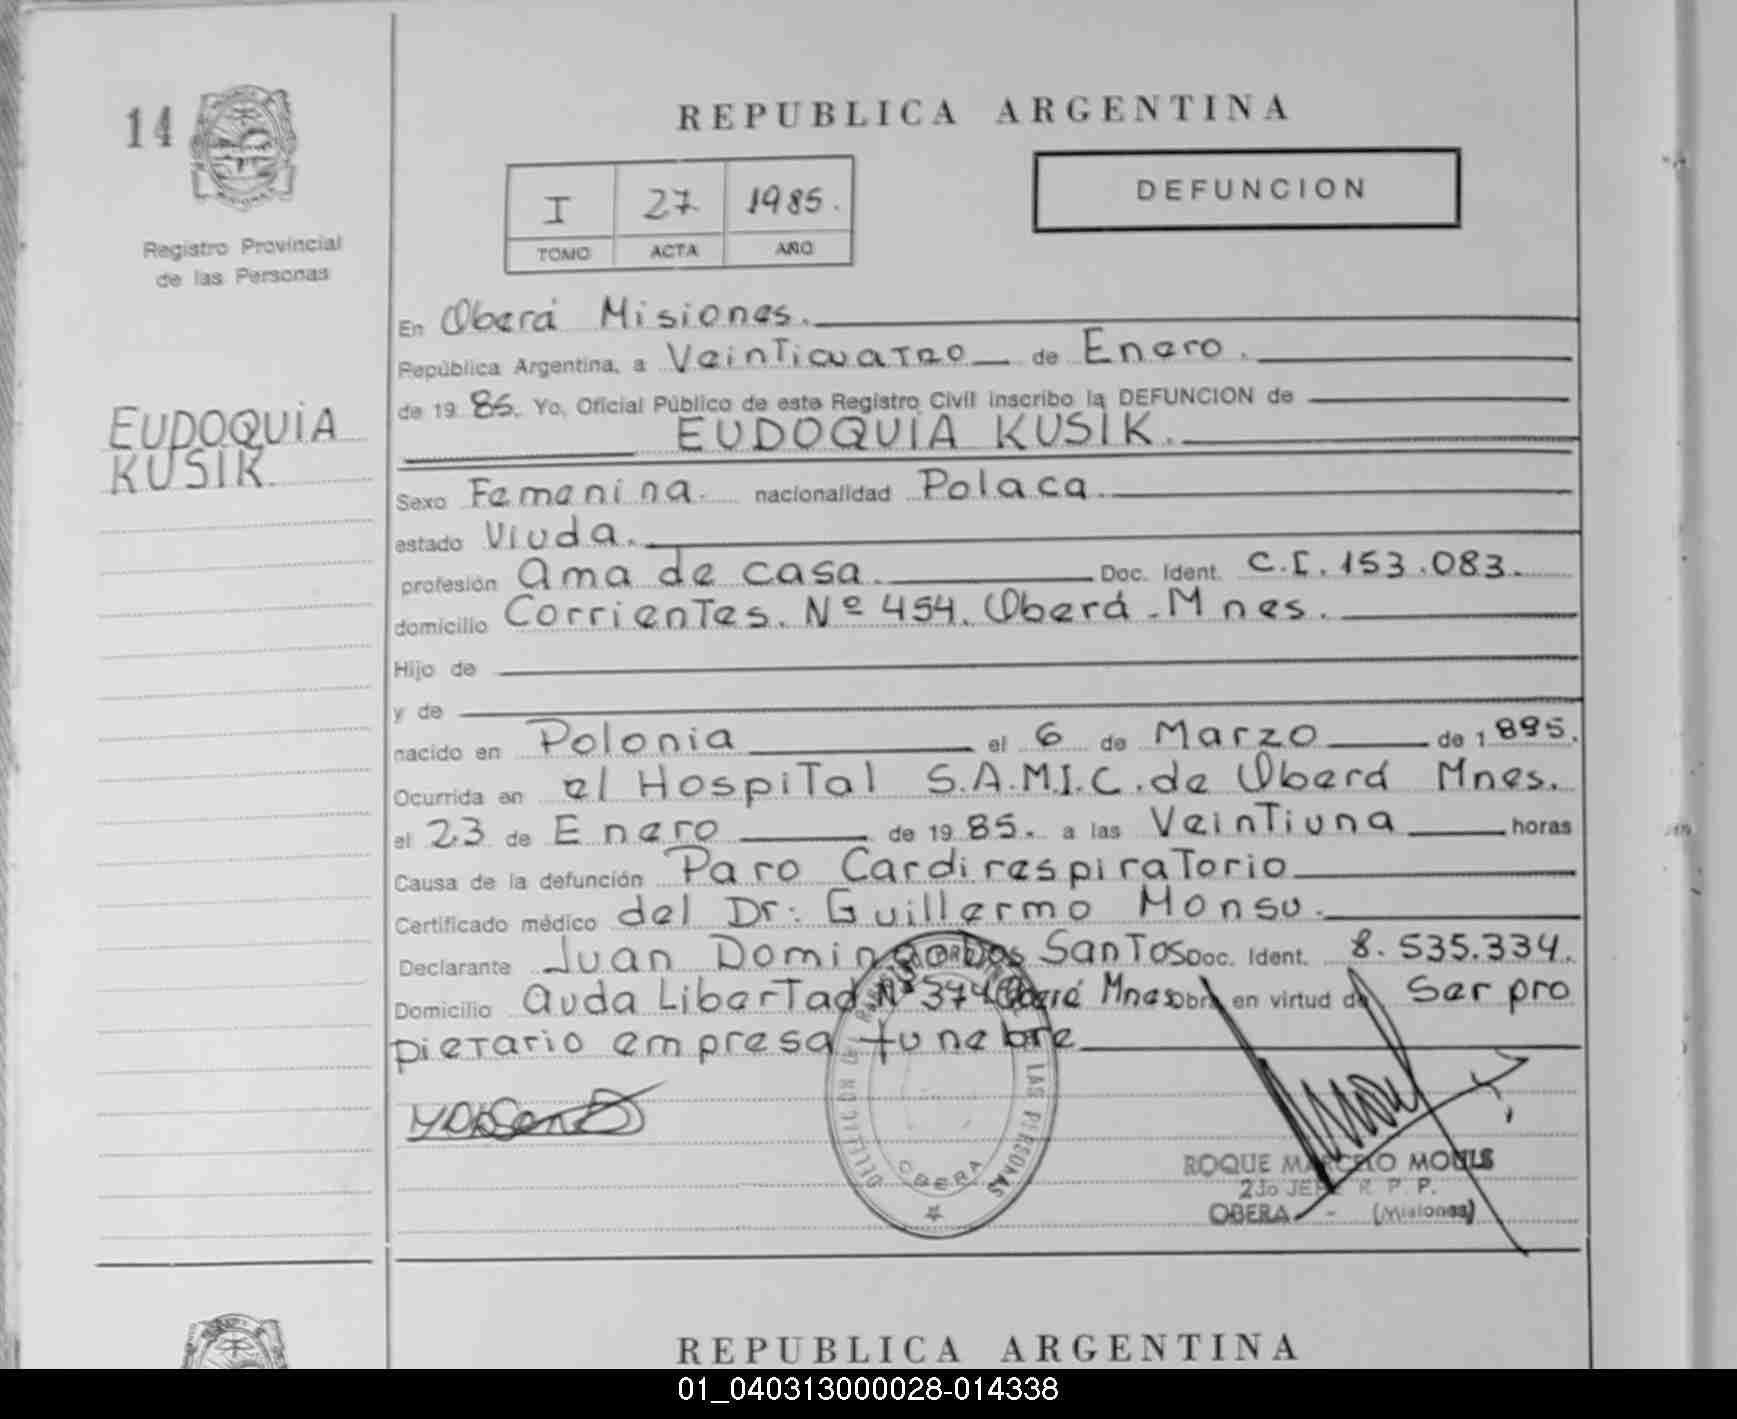 14
Registro Provincial
de las Personas
REPUBLICA ARGENTINA
I 27 1985.
TOMO ACTA AÑO
DEFUNCION
EUDOQUIA
KUSIK.
En Oberá Misiones.
República Argentina, a Veinticuatro de Enero.
de 19 85. Yo, Oficial Público de este Registro Civil inscribo la DEFUNCION de
EUDOQUIA KUSIK.
Sexo Femenina. nacionalidad Polaca.
estado Viuda.
profesión Ama de casa. Doc. Ident. C.I. 153.083.
domicilio Corrientes. Nº 454. Oberá - Mnes.
Hijo de
y de
nacido en Polonia el 6 de Marzo de 1 895.
Ocurrida en el Hospital S.A.M.I.C. de Oberá Mnes.
el 23 de Enero de 19 85. a las Veintiuna horas
Causa de la defunción Paro Cardirespiratorio
Certificado médico del Dr: Guillermo Monsu.
Declarante Juan Domingo Dos Santos Doc. Ident. 8.535.334.
Domicilio Avda Libertad Nº 374 Oberá Mnes Obra en virtud de Ser pro
pietario empresa funebre
DELEGACION REGISTRO PROVINCIAL DE LAS PERSONAS
OBERA
ROQUE MARCELO
2do JEFE R. P. P.
OBERA - (Misiones)
REPUBLICA ARGENTINA
01_040313000028-014338